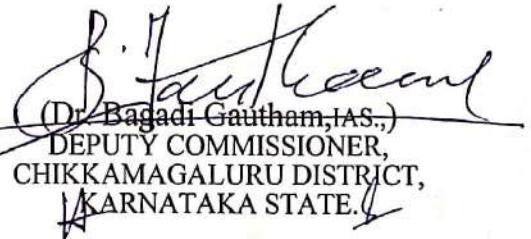 B. Gautham
(Dr. Bagadi Gautham,IAS.,)
DEPUTY COMMISSIONER,
CHIKKAMAGALURU DISTRICT,
KARNATAKA STATE.